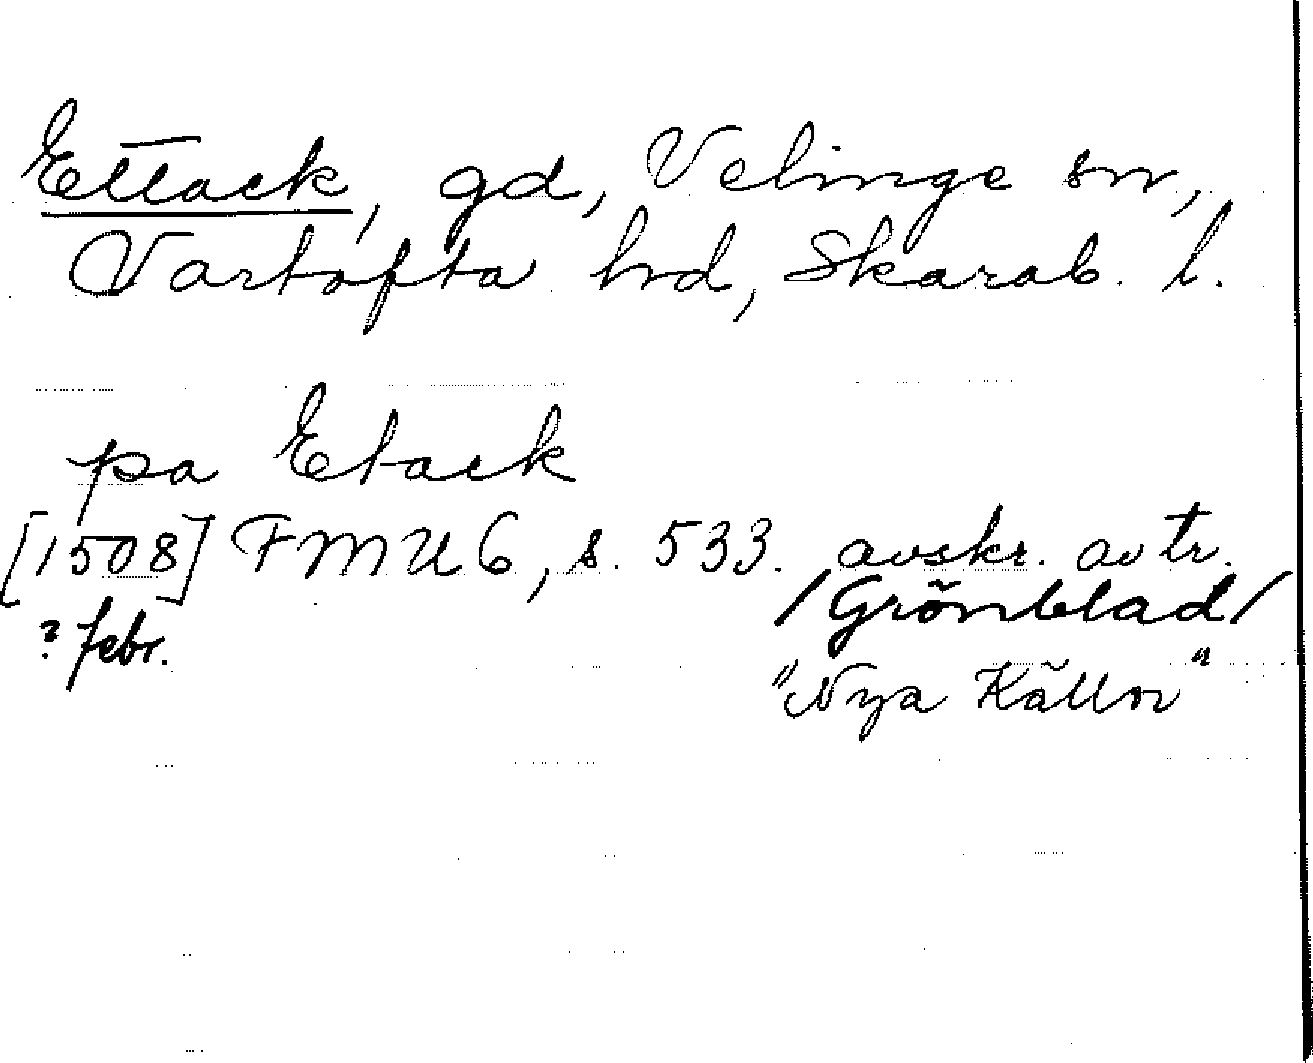 Ettack, gd, Velinge sn,
Vartofta hd, Skarab. l.
pa Etack
[1508] FMU 6, s. 533. avskr. av tr.
? febr. /Grönblad/
"Nya Källor"